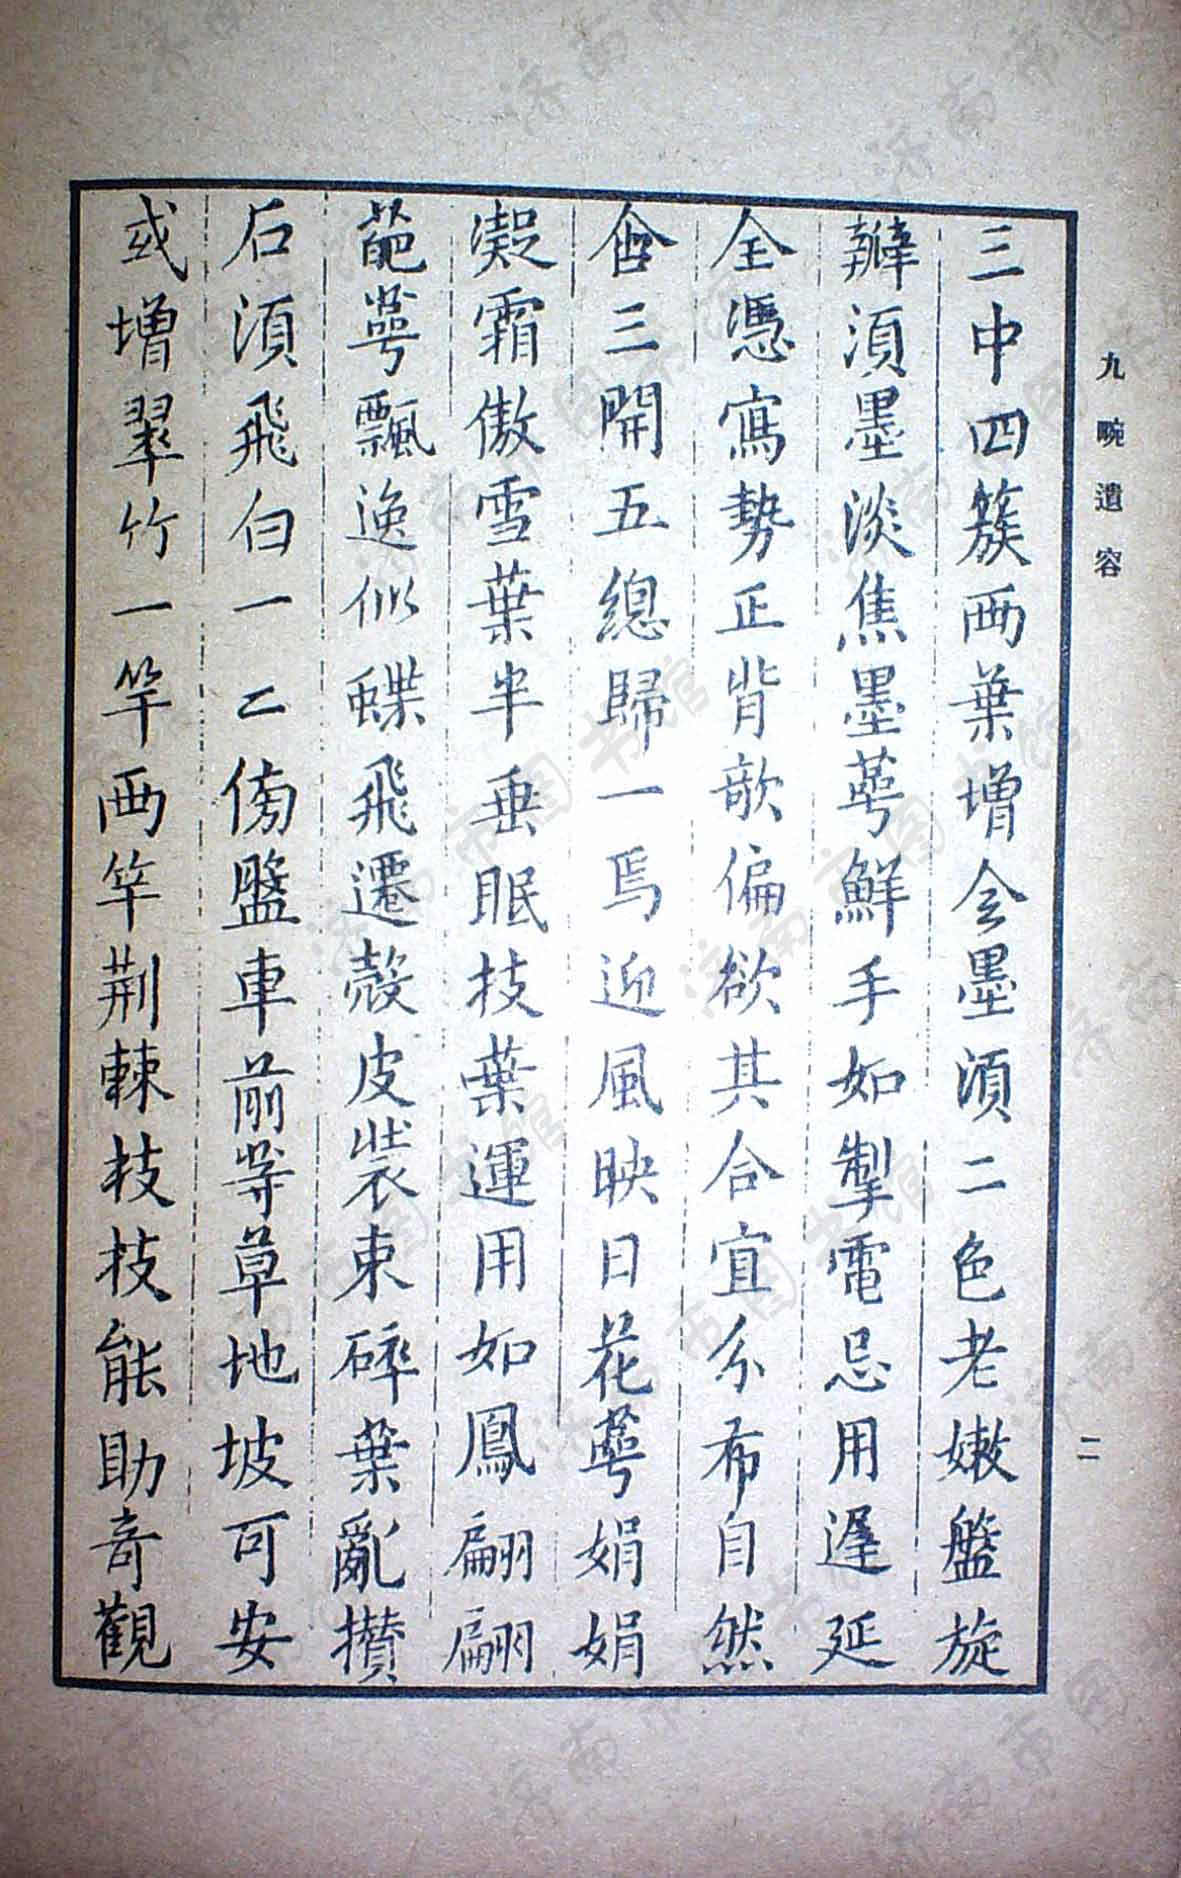 九畹遺容
二
三中四簇两葉增会墨湏二色老嫩盤旋
瓣湏墨淡焦墨蕚鮮手如掣電忌用遲延
全憑寫勢正背歆偏欲其合宜分布自然
含三開五總歸一焉迎風映日花蕚娟娟
凝霜傲雪葉半垂眠技葉運用如鳳翩翩
葩蕚飄逸似蝶飛遷殻皮裝束碎葉亂攢
石湏飛白一二傍盤車前等草地坡可安
或增翠竹一竿两竿荆棘技技能助奇觀
济南市图书馆